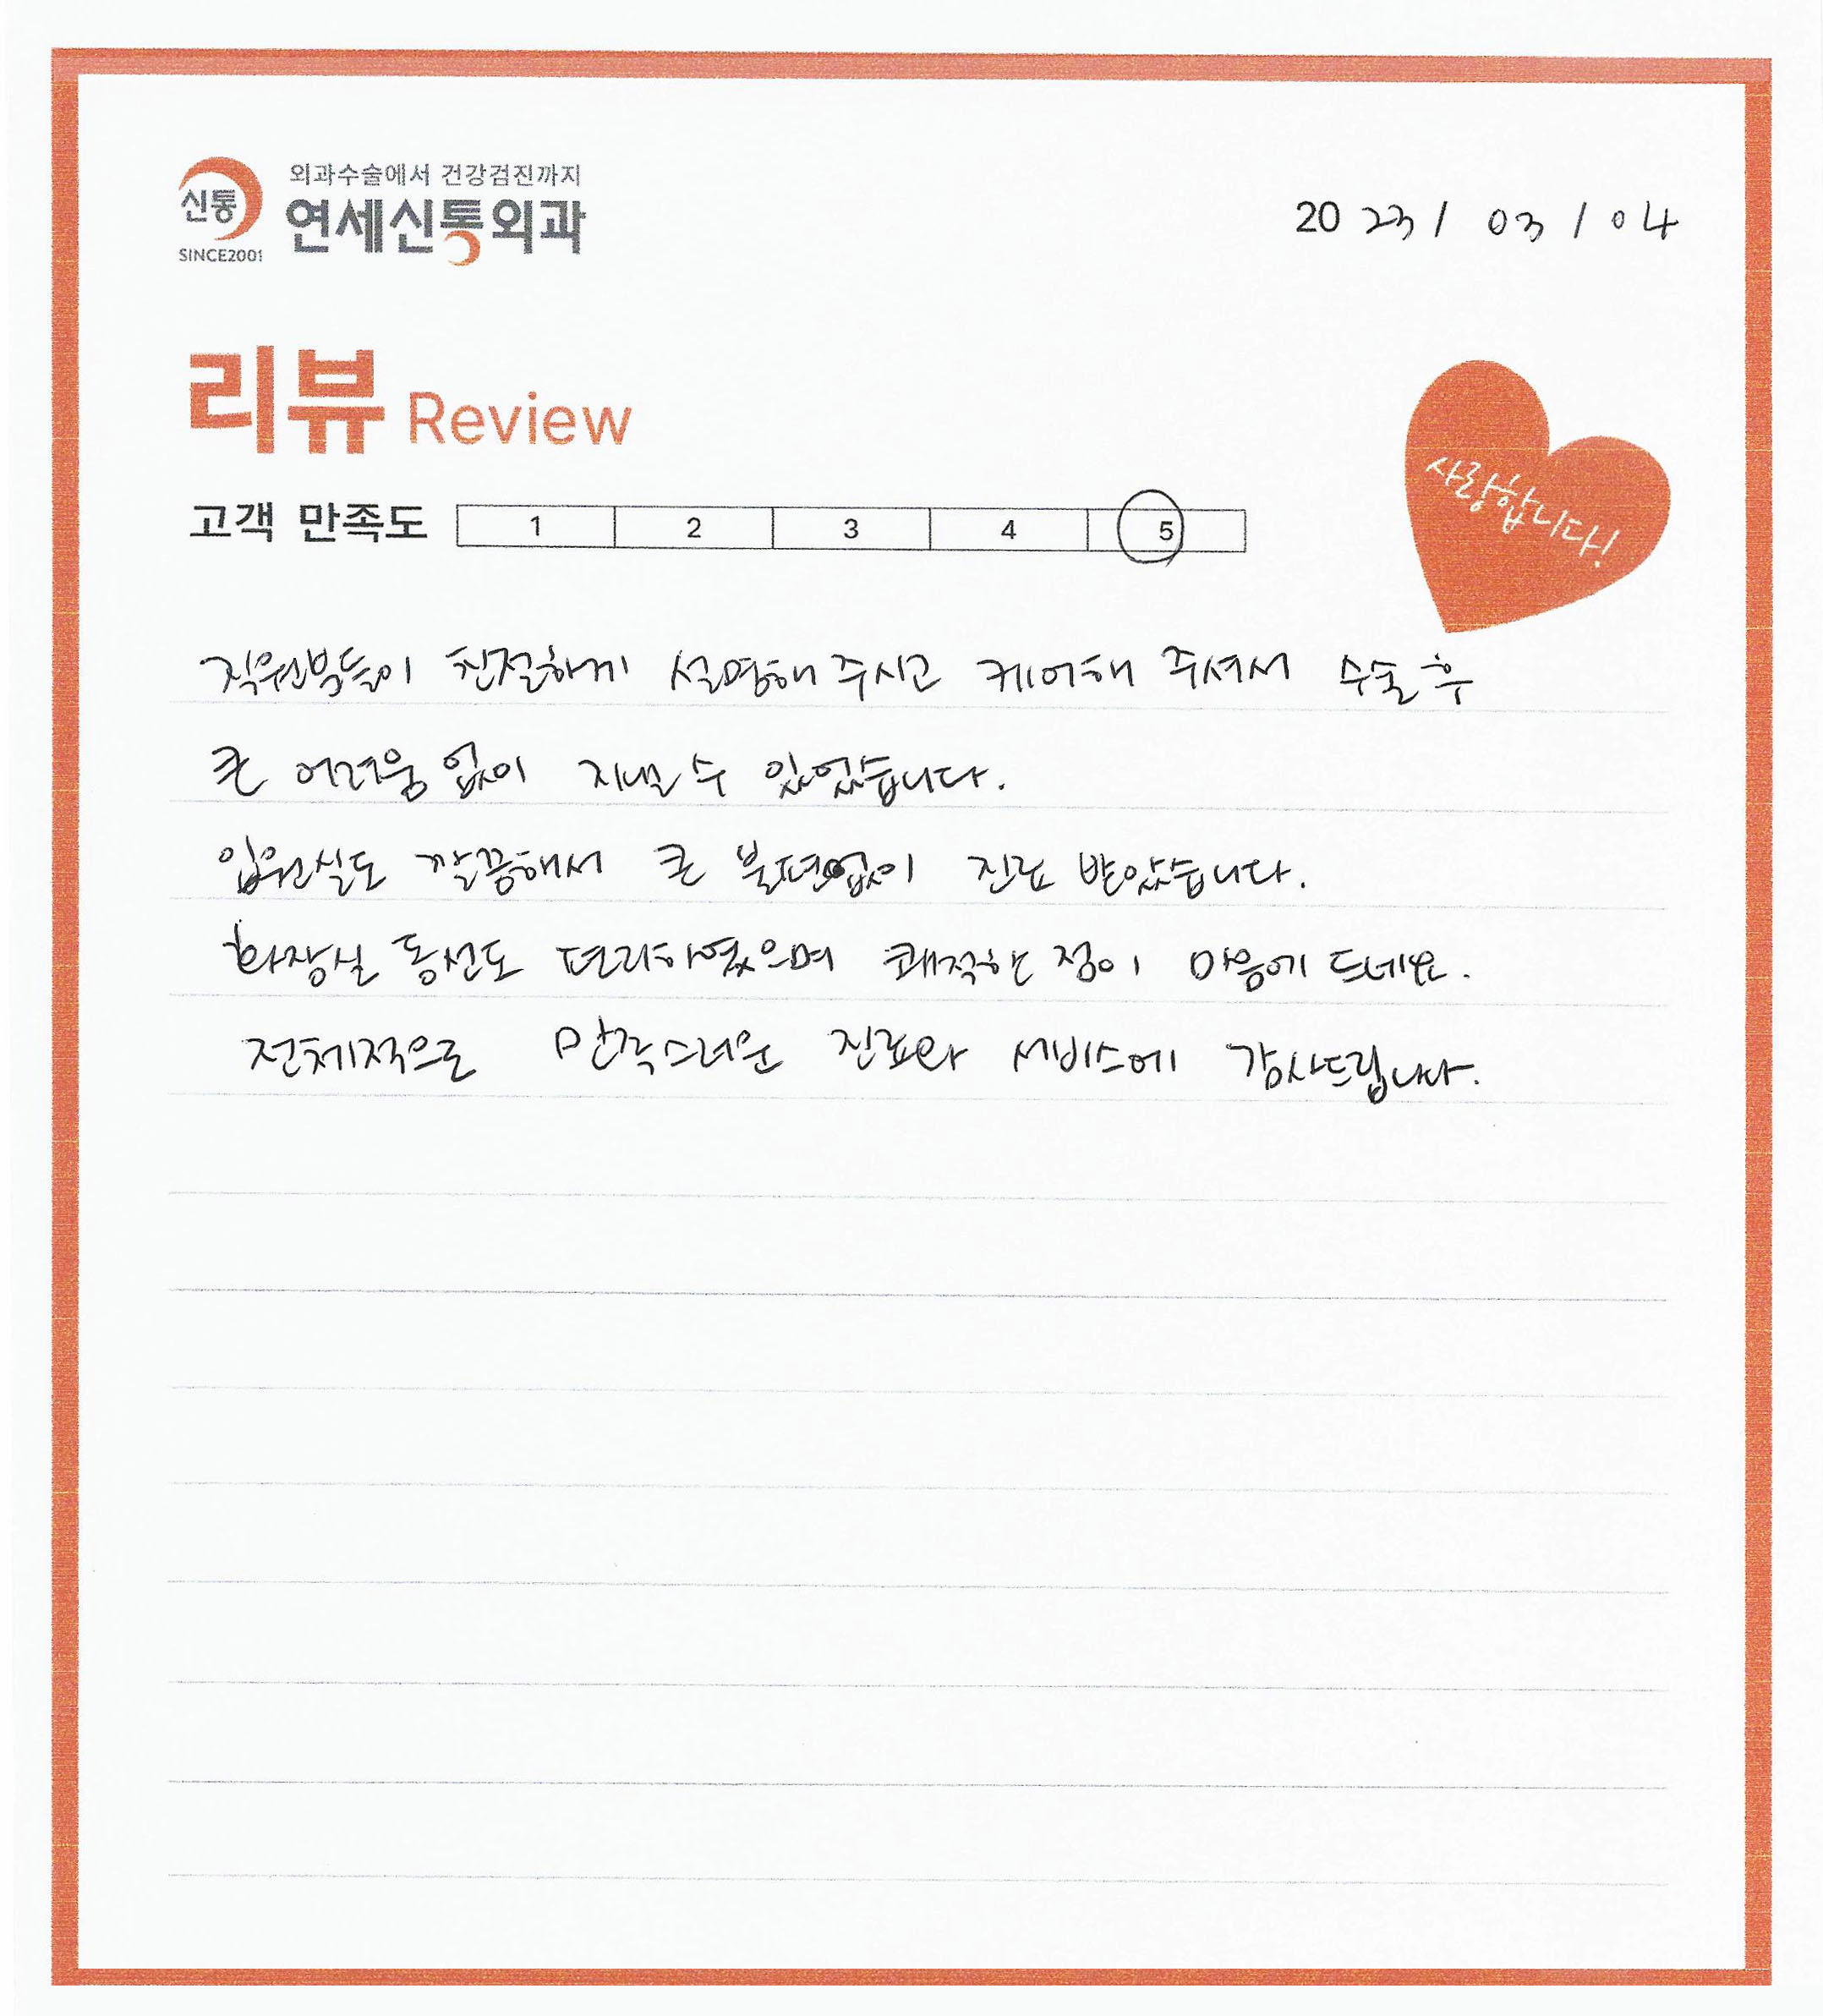 외과수술에서 건강검진까지
신통
연세신통외과
SINCE2001
2023 / 03 / 04
리뷰 Review
사랑합니다!
고객 만족도 1 2 3 4 5
직원분들이 친절하게 설명해 주시고 케어해 주셔서 수술 후
큰 어려움 없이 지낼 수 있었습니다.
입원실도 깔끔해서 큰 불편없이 진료 받았습니다.
화장실 동선도 편리하였으며 쾌적한 점이 마음에 드네요.
전체적으로 만족스러운 진료와 서비스에 감사드립니다.